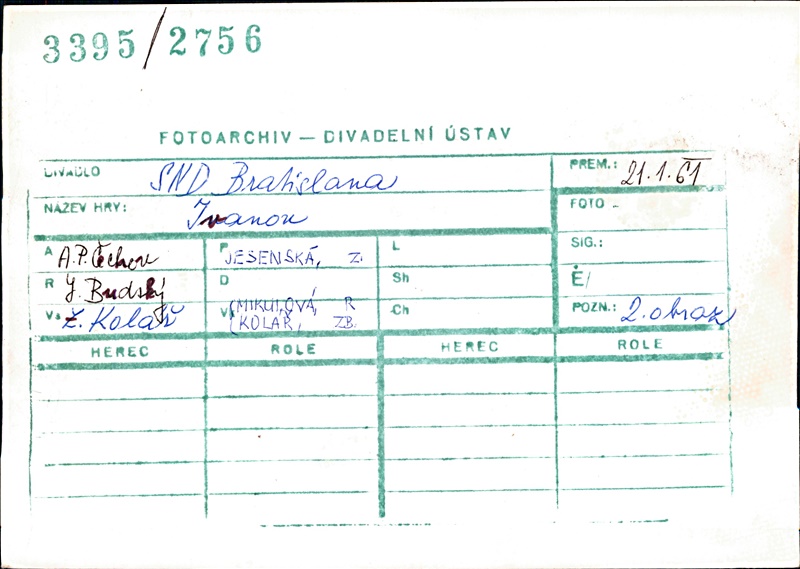 3395/2756
FOTOARCHIV — DIVADELNÍ ÚSTAV
DIVADLO SND Bratislava
PREM.: 21.1.61
NÁZEV HRY: Ivanov
FOTO -
A A.P. Čechov
P JESENSKÁ, Z.
L
SIG.:
R J. Budský
D
Sh
Ė/
V Z. Kolář
V (MIKULOVÁ, R
(KOLAŘ, ZB.
Ch
POZN.: 2. obraz
HEREC ROLE HEREC ROLE